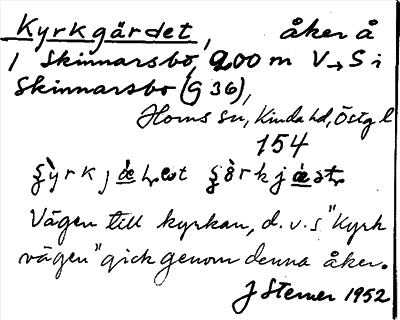 Kyrkgärdet, åker å
1 Skinnarsbo, 200 m V→S i
Skinnarsbo (G 36),
Horns sn, Kinda hd, Östg l
154
Vägen till kyrkan, d.v.s "Kyrk
vägen" gick genom denna åker.
J Sterner 1952